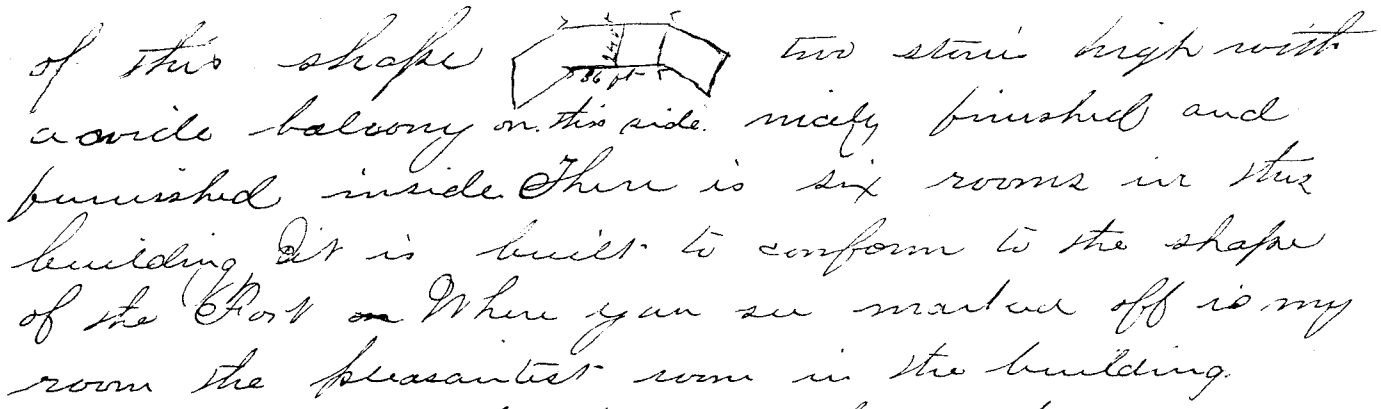 of this shape 24 ft 36 ft two stories high with
a wide balcony on this side. nicely finished and
furnished inside There is six rooms in this
building It is built to conform to the shape
of the Fort Where you see marked off is my
room the pleasantest room in the building.